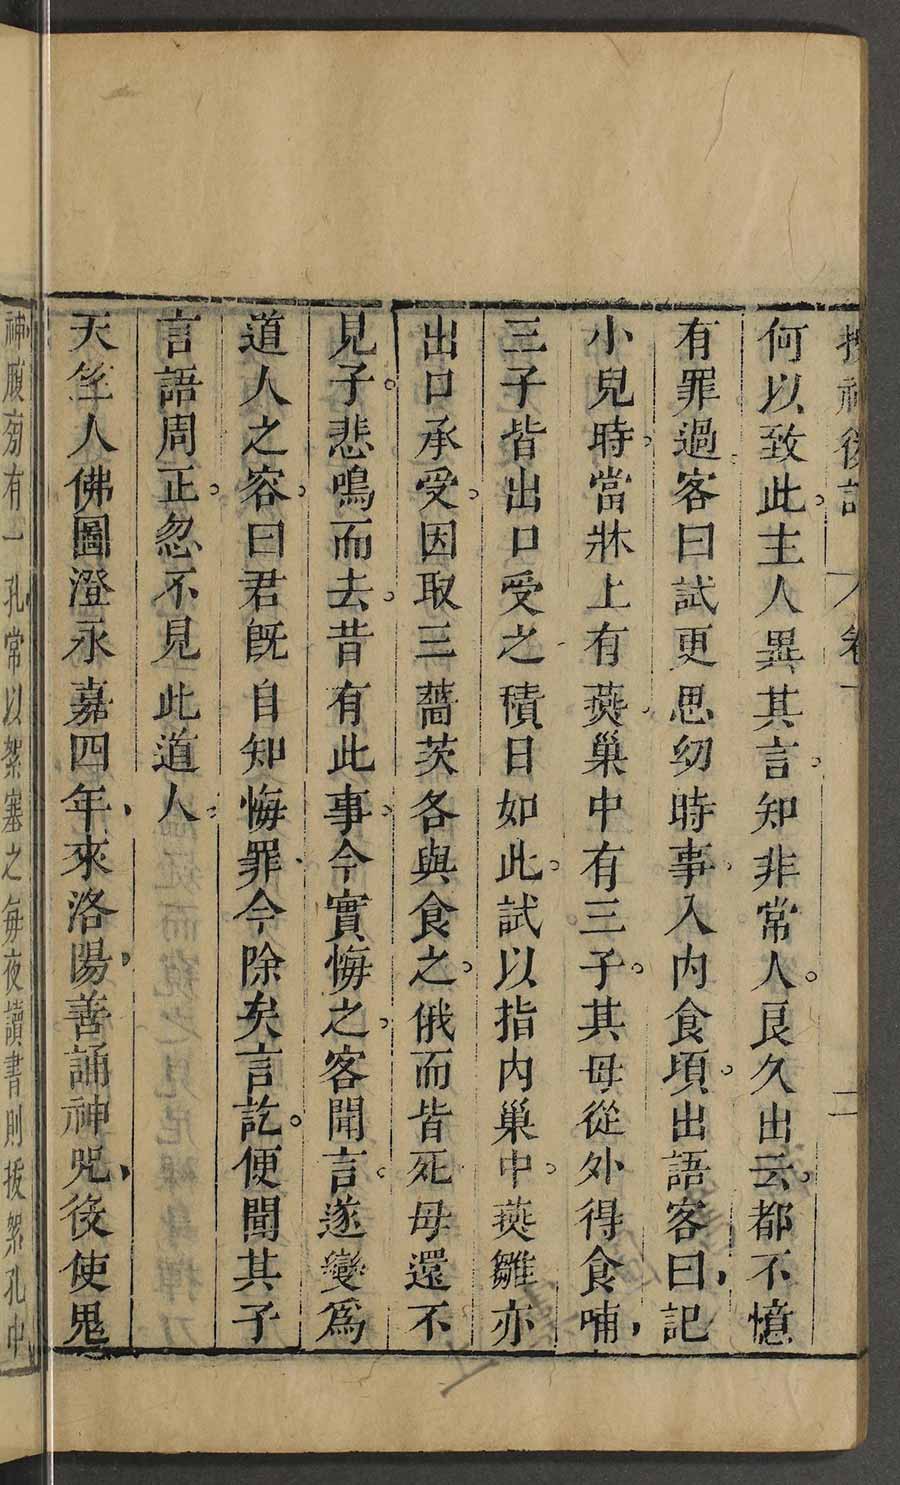 搜神後記 卷二 二
何以致此主人異其言知非常人良久出云都不憶
有罪過客曰試更思幼時事入內食頃出語客曰記
小兒時當牀上有燕巢中有三子其母從外得食哺
三子皆出口受之積日如此試以指內巢中燕雛亦
出口承受因取三薔茨各與食之俄而皆死母還不
見子悲鳴而去昔有此事今實悔之客聞言遂變為
道人之容曰君旣自知悔罪今除矣言訖便聞其子
言語周正忽不見此道人
天竺人佛圖澄永嘉四年來洛陽善誦神呪役使鬼
神腹旁有一孔常以絮塞之每夜讀書則拔絮孔中